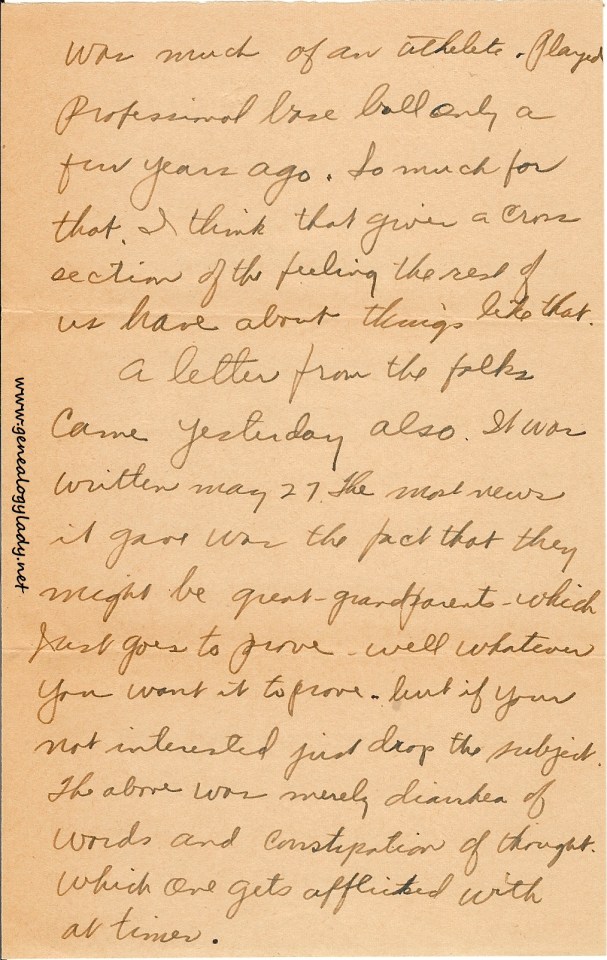 was much of an athelete. Played
professional base ball only a
few years ago. So much for
that. I think that gives a cross
section of the feeling the rest of
us have about things like that.
A letter from the folks
came yesterday also. It was
written may 27. The most news
it gave was the fact that they
might be great-grandparents - which
just goes to prove - well whatever
you want it to prove - but if your
not interested just drop the subject.
The above was merely diarrhea of
words and constipation of thought.
which one gets afflicted with
at times.
www.genealogylady.net